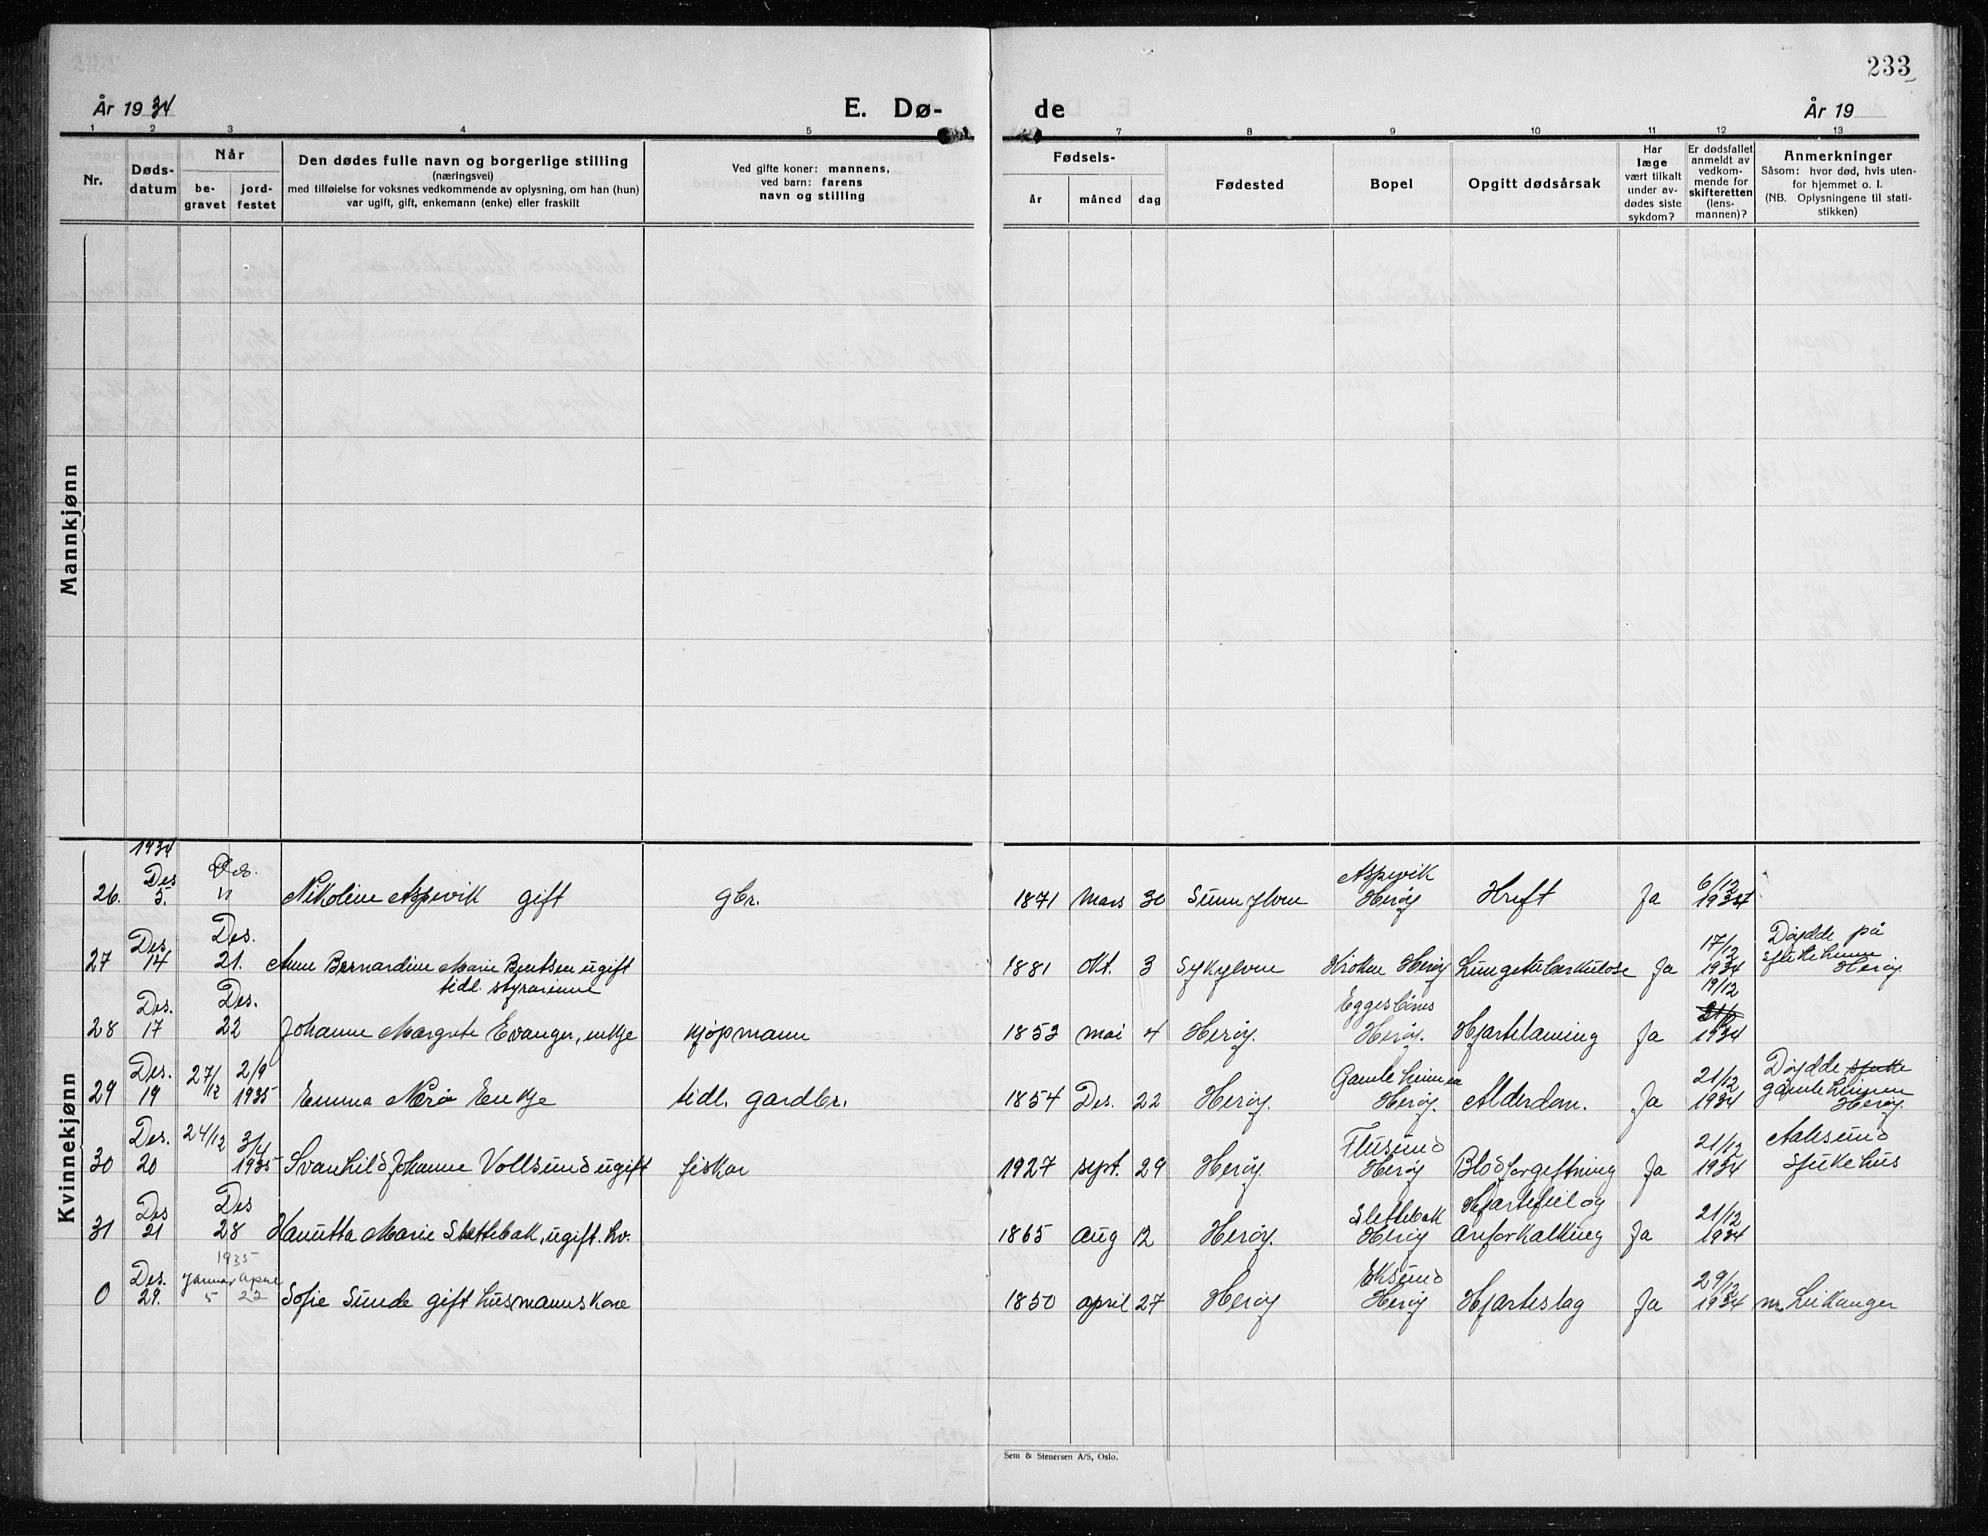 233
År 1934 E. Dø- de År 19
1 2 3 4 5 7 8 9 10 11 12 13
Nr. Døds-datum Når be-gravet jord-festet
Den dødes fulle navn og borgerlige stilling
(næringsvei)
med tilføielse for voksnes vedkommende av oplysning, om han (hun)
var ugift, gift, enkemann (enke) eller fraskilt
Ved gifte koner: mannens,
ved barn: farens
navn og stilling
Fødsels-
år måned dag
Fødested
Bopel
Opgitt dødsårsak
Har
læge
vært tilkalt
under av-
dødes siste
sykdom?
Er dødsfallet
anmeldt av
vedkom-
mende for
skifteretten
(lens-
mannen)?
Anmerkninger
Såsom: hvor død, hvis uten-
for hjemmet o. l.
(NB. Oplysningene til stati-
stikken)
Mannkjønn
Kvinnekjønn
1934
26. Des 5. Des. 11 Nikoline Aspevik gift gbr. 1871 Mars 30 Sunnylven Aspevik Herøy Kreft Ja 6/12 1934
27 Des. 14 Des. 21. Anne Bernardine Marie Bentsen ugift tidl. styrarinne 1881 Okt. 3 Sykylven Kroken Herøy Lungetuberkulose Ja 17/12 1934 Døydde på sjukeheim Herøy
28 Des. 17 Des. 22 Johanne Margrete Evanger, enkje kjøpmann 1853 mai 4 Herøy. Eggesbønes Herøy. Hjartelaming Ja 19/12 1934
29 Des. 19 27/12 2/9 1935 Emma Nærø Enkje tidl. gardbr. 1854 Des. 22 Herøy. Gamleheimen Herøy. Alderdom. Ja 21/12 1934 Døydde sjuke gamleheimen Herøy.
30 Des. 20 24/12 3/4 1935 Svanhild Johanne Vollsund ugift fiskar 1927 sept. 29 Herøy. Flusund Herøy Blodforgiftning Ja 21/12 1934 Aalesund sjukehus
31 Des 21 Des 28 Hanutta Marie Slettebak, ugift. kv. 1865 aug 12 Herøy. Slettebak Herøy Hjartefeil og Areforkalking Ja 21/12 1934
0 Des. 29. 1935 Januar 5 April 22 Sofie Sunde gift husmannskone 1850 april 27 Herøy Eksund Herøy Hjarteslag Ja 29/12 1934 nr. Leikanger
Sem & Stenersen A/S, Oslo.